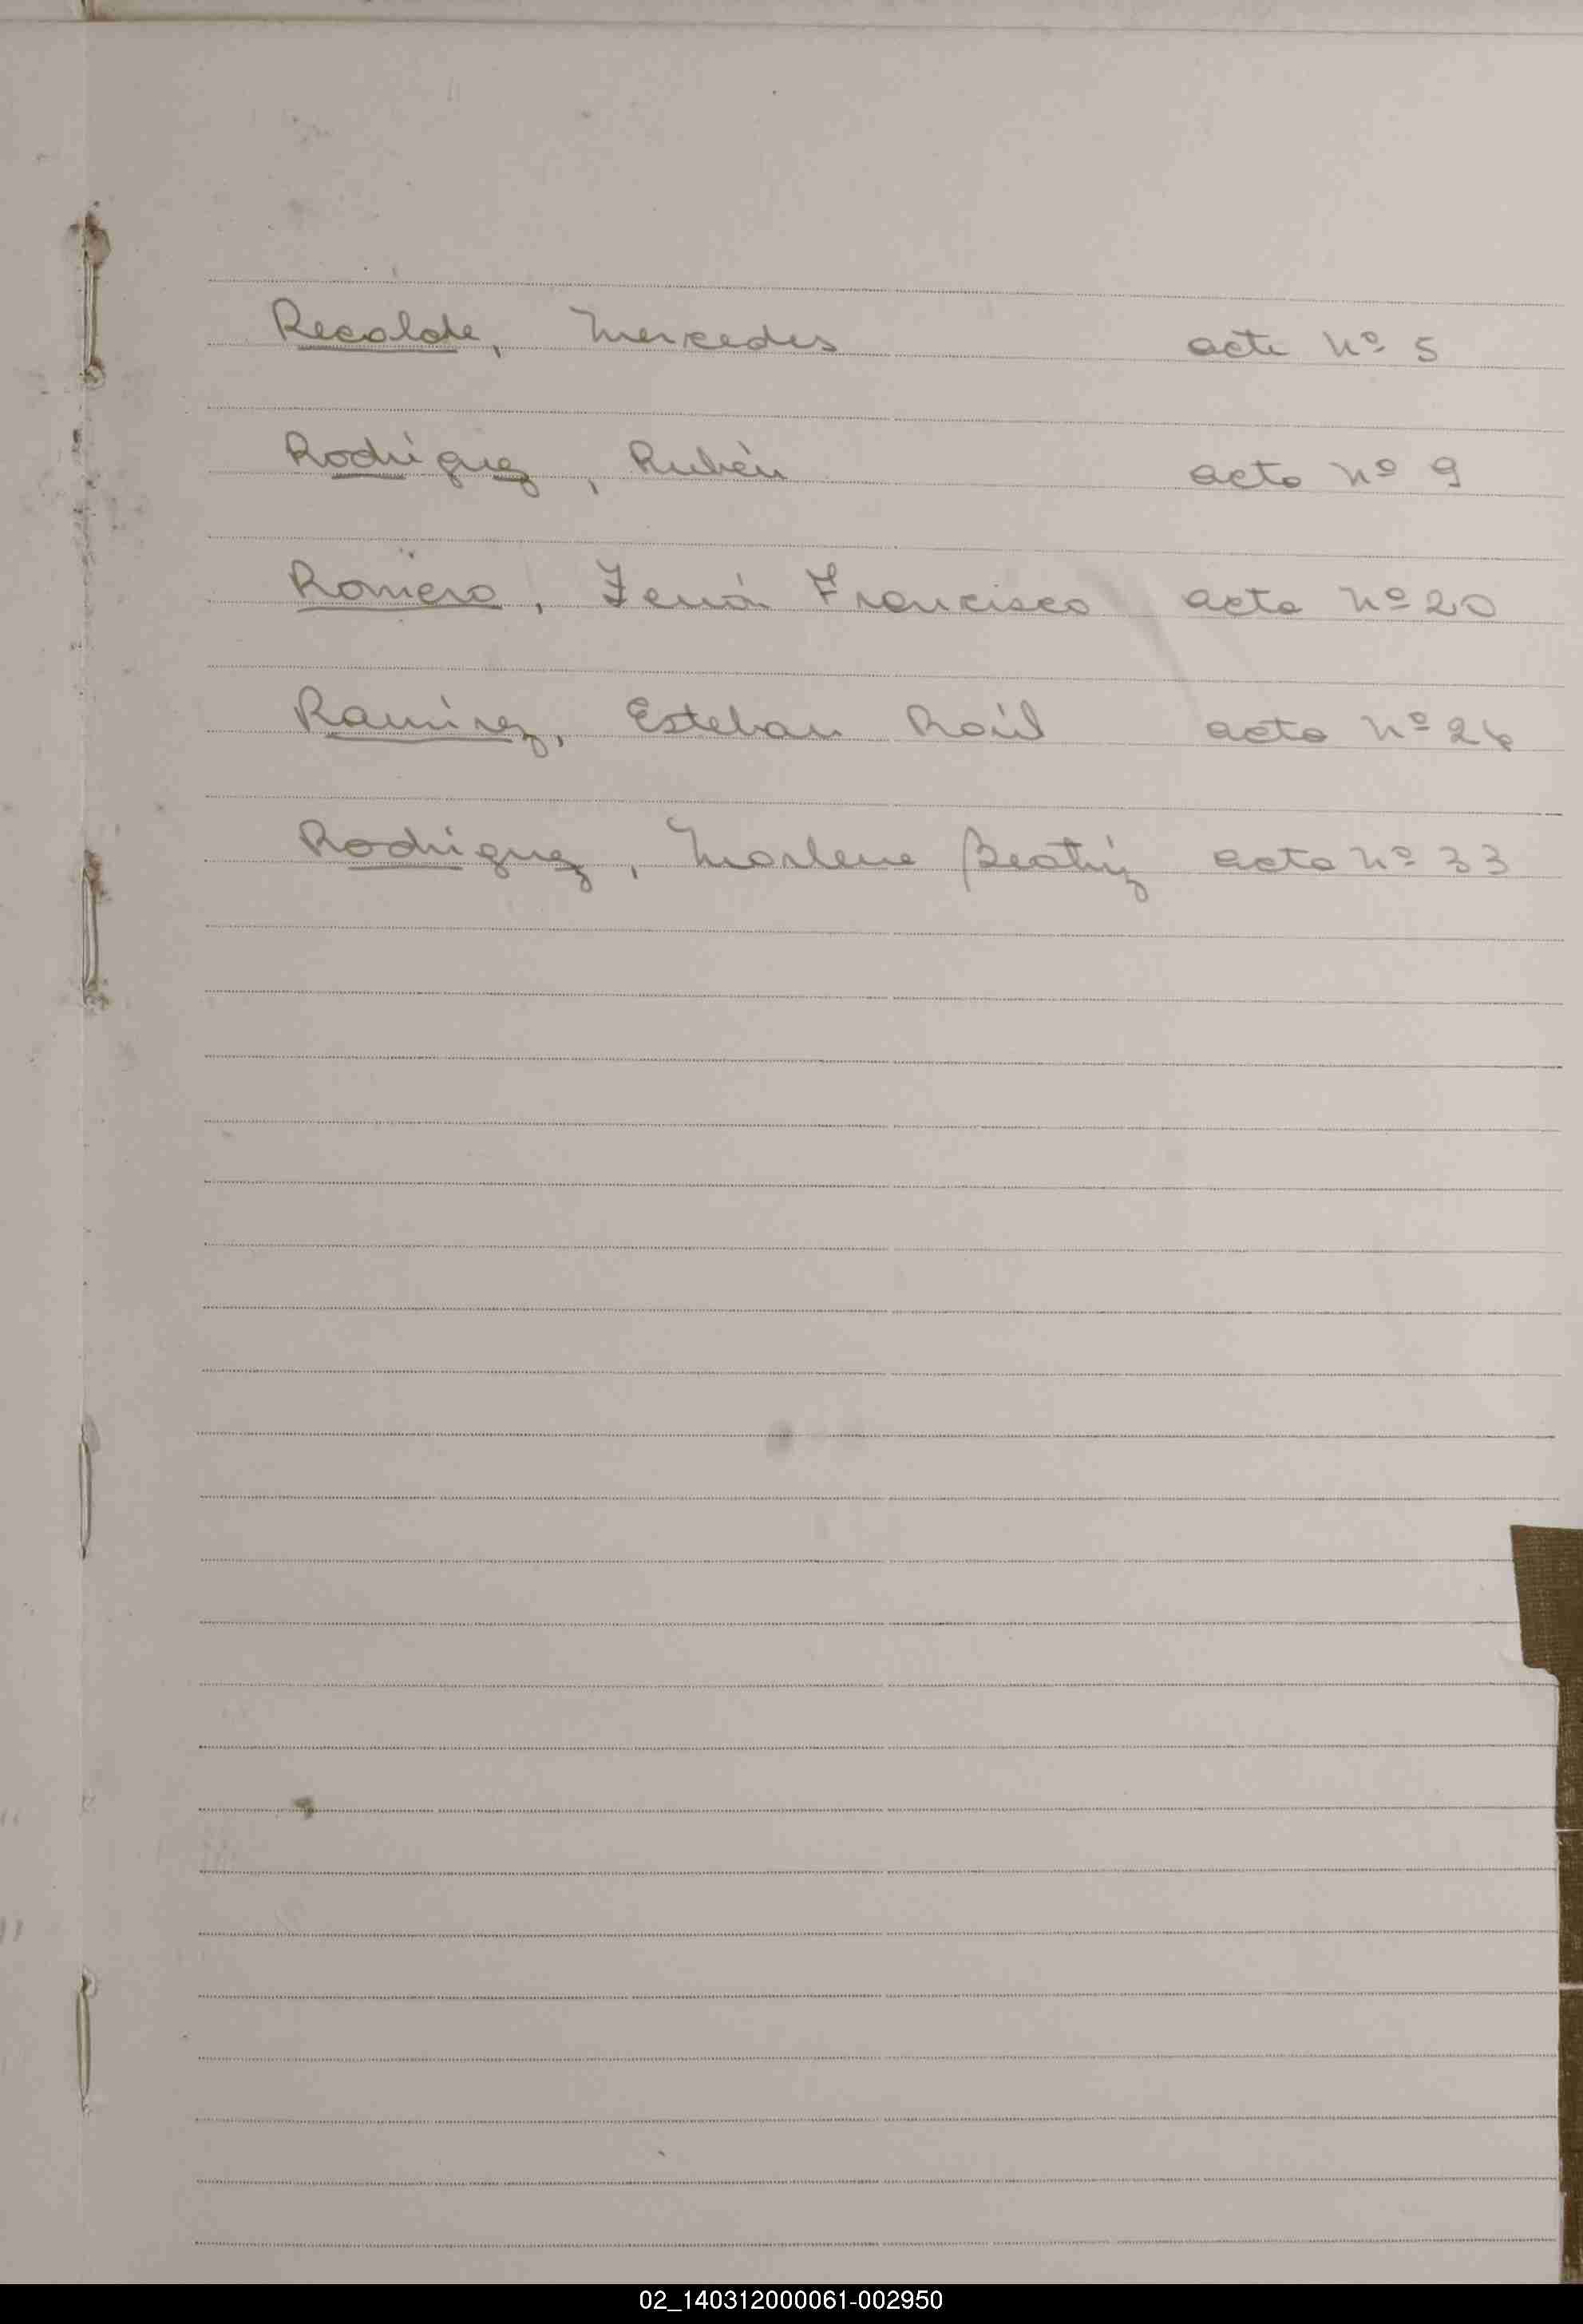 Recalde, Mercedes acta nº 5
Rodríguez, Rubén acta nº 9
Romero, Francisco acta nº 20
Ramírez, Esteban Raúl acta nº
Rodríguez, Marlene Beatriz acta nº 33
02_140312000061-002950